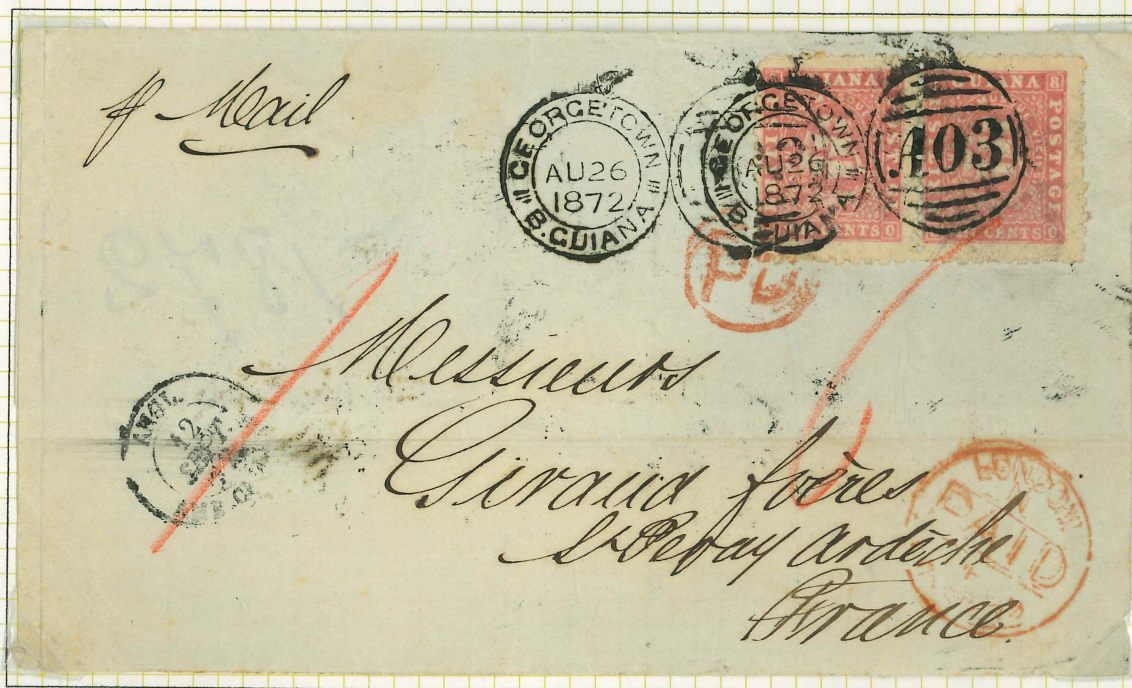 p Mail
GEORGETOWN
AU 26
1872
B. GUIANA
GEORGETOWN
AU 26
1872
B. GUIANA
A03
GUIANA 8
POSTAGE
CENTS 0
CENTS 0
PD
Messieurs
Giraud frères
St Peray Ardèche
France
ANGL.
12
SEPT.
LONDON
PAID